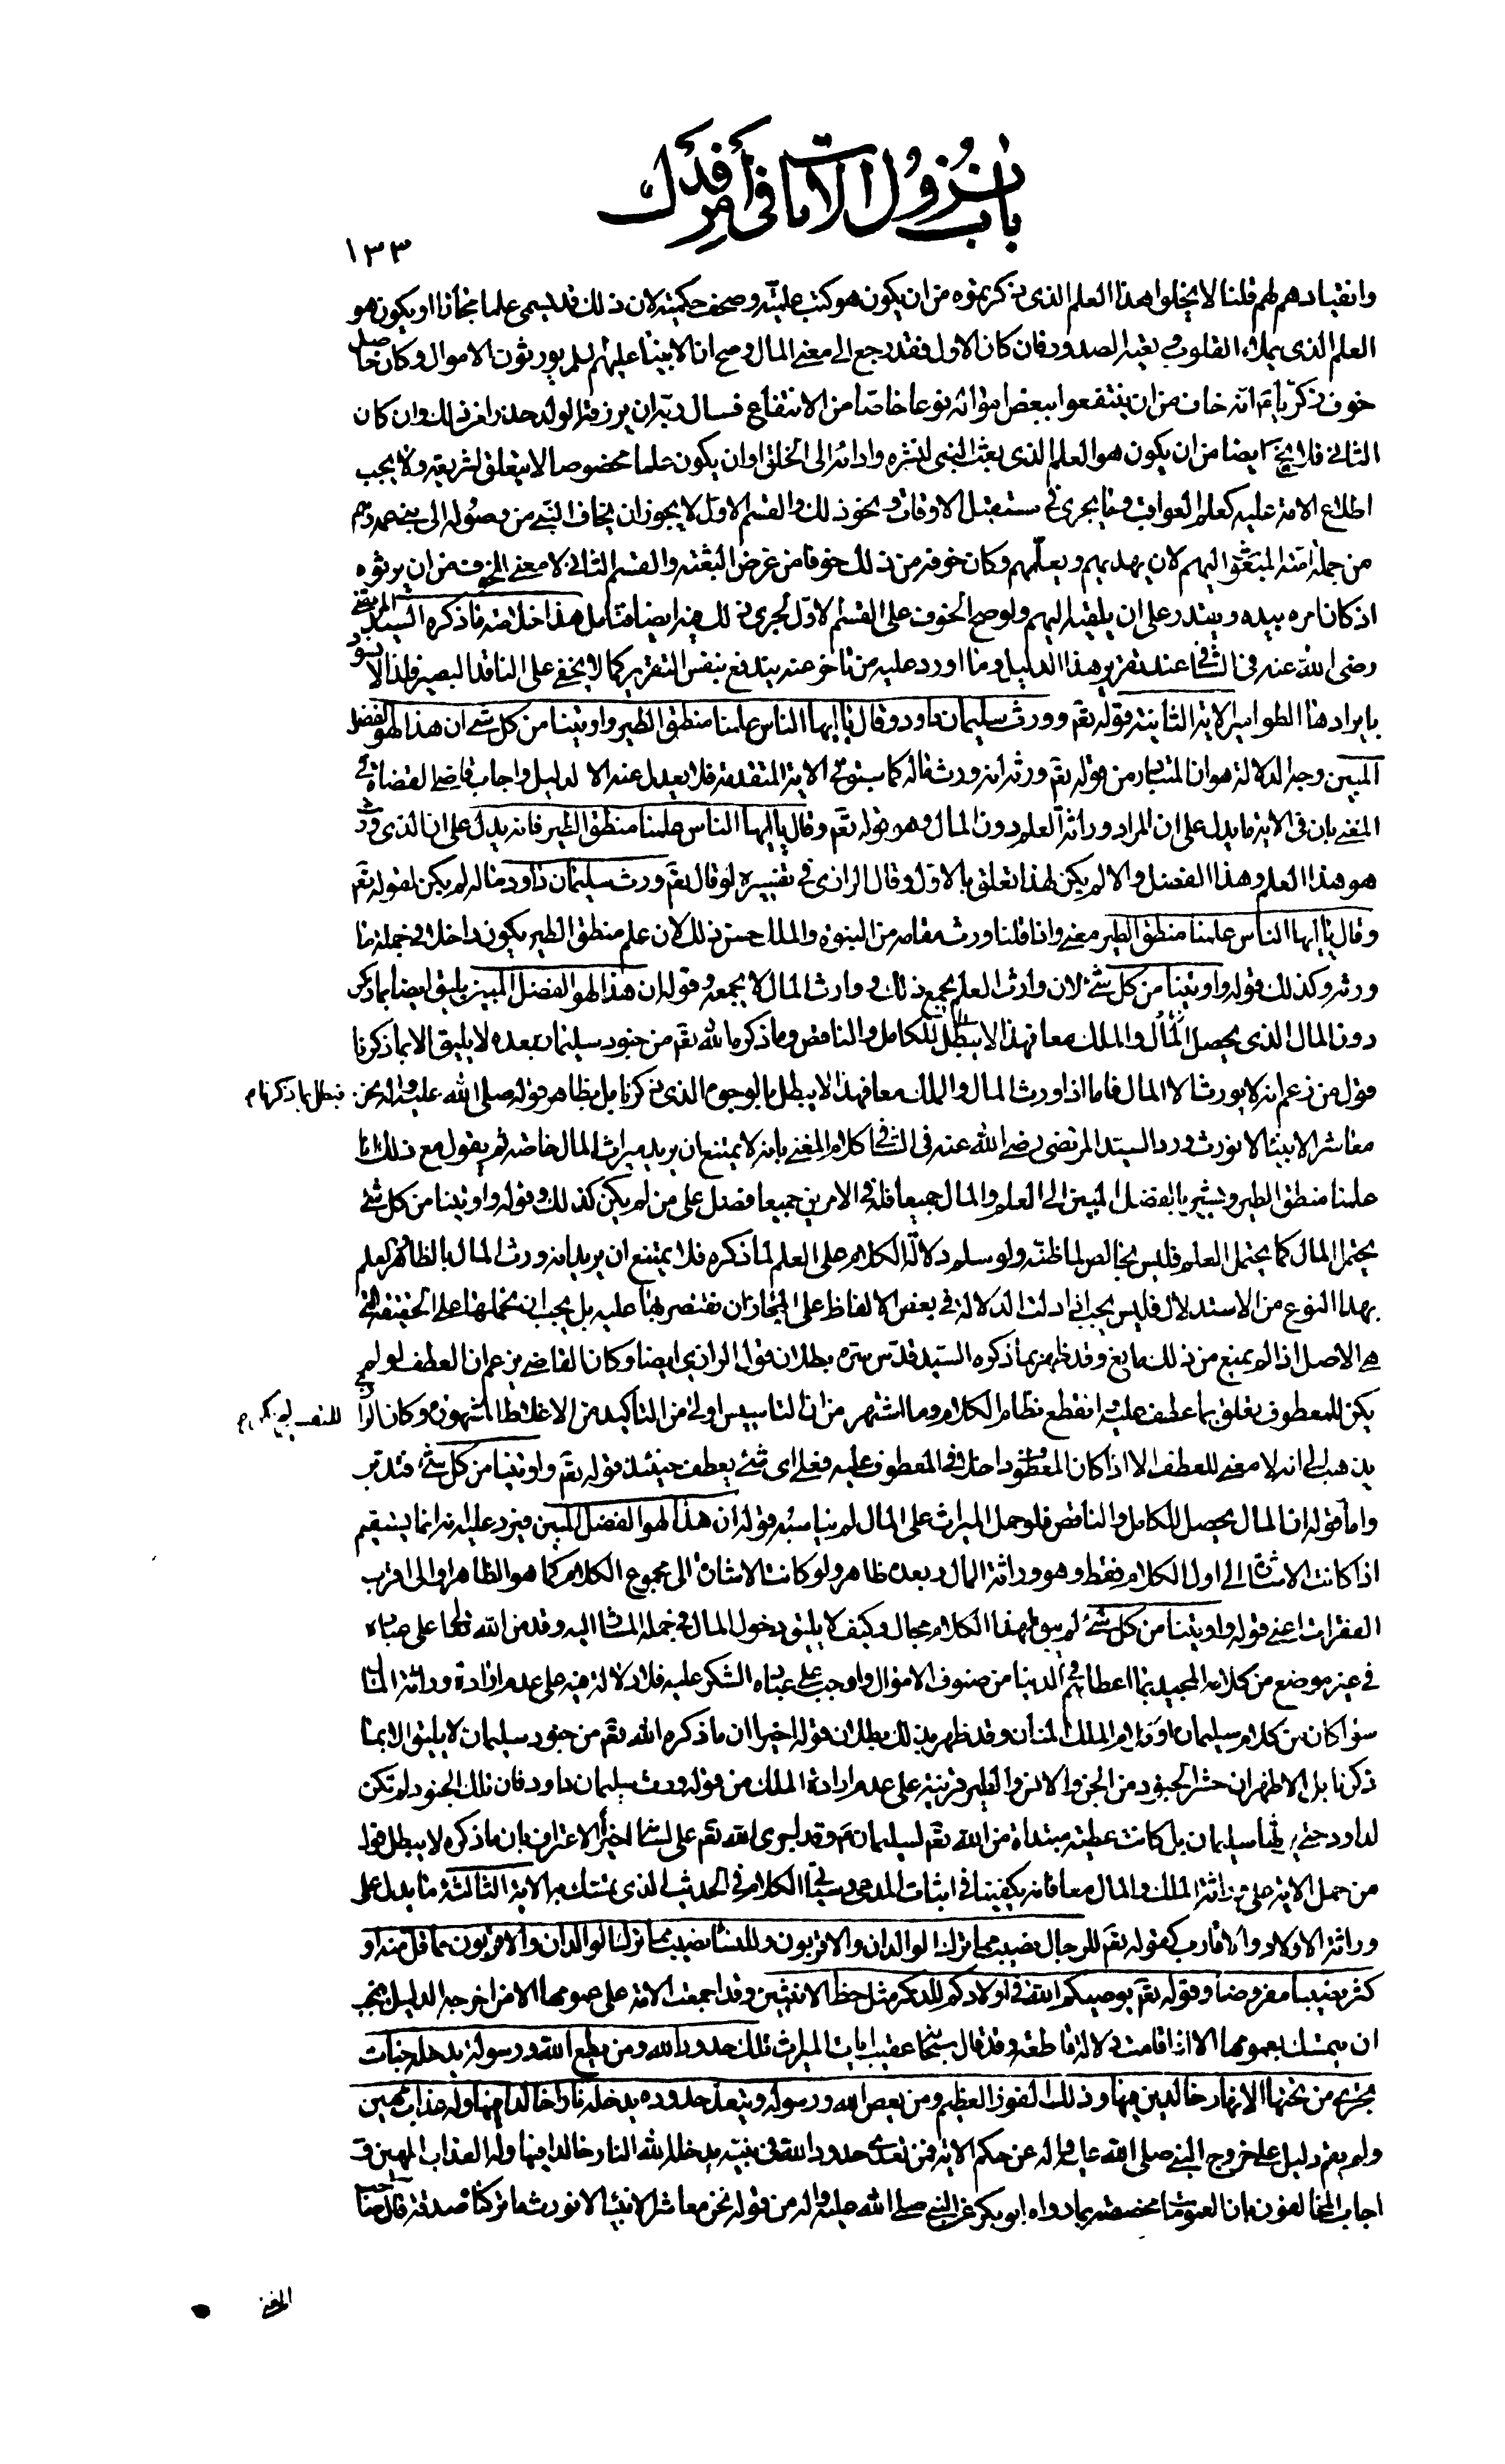 باب نزول الآيات في أمر فدك
١٣٣
وانقيادهم لهم قلنا لا يخلوا هذا العلم الذي ذكرتموه من ان يكون هو كتب علميّة وصحف حكميّة لان ذلك قد يسمى علما مجازا او يكون هو
العلم الذي يملأ القلوب ويعيه الصدور فان كان الاول فقد رجع الى معنى المال وصح ان الانبياء عليهم لم يورثون الاموال وكان حاصل
خوف زكريا ع انّه خاف من ان ينتفعوا ببعض امواله نوعا خاصّا من الانتفاع فسال ربّه ان يرزقه الولد حذرا من ذلك وان كان
الثاني فلا يخ ايضا من ان يكون هو العلم الذي بعث النبى لنشره وادائه الى الخلق او ان يكون علما مخصوصا لا يتعلق لشريعة ولا يجب
اطلاع الامة عليه كعلم العواقب وما يجري في مستقبل الاوقات ونحو ذلك والقسم الاوّل لا يجوز ان يخاف النبي من وصوله الى بني عمه وهم
من جملة امته المبعوث اليهم لان يهديهم ويعلّمهم وكان خوفه من ذلك خوفا من غرض البعثة والقسم الثاني لا معنى للخوف من ان يرثوه
اذ كان امره بيده ويقدر على ان يلقيه اليهم ولو صح الخوف على القسم الاوّل لجرى ذلك فيه ايضا فتامل هذا خلاصة ما ذكره السيد المرتضى
رضي الله عنه في الشافي عند تقرير هذا الدليل وما اورد عليه من تاخر عنه يندفع بنفس التقرير كما لا يخفى على الناقد البصير فلذا لا نسود
بايرادها الطوامير الاية الثانية قوله تع وورث سليمان داود وقال يا ايها الناس علمنا منطق الطير واوتينا من كل شيء ان هذا لهو الفضل
المبين وجه الدلالة هو ان المتبادر من قوله تع ورثه انه ورث ماله كما سبق في الاية المتقدمة فلا يعدل عنه الا لدليل واجاب قاضي القضاة في
المغني بان في الاية ما يدل على ان المراد وراثة العلم دون المال وهو قوله تع وقال يا ايها الناس علمنا منطق الطير فانه يدل على ان الذي ورث
هو هذا العلم وهذا الفضل والا لم يكن لهذا تعلق بالاول وقال الرازي في تفسيره لو قال تع ورث سليمان داود ماله لم يكن لقوله تع
وقال يا ايها الناس علمنا منطق الطير معنى واذا قلنا ورث مقامه من النبوة والملك حسن ذلك لان علم منطق الطير يكون داخلا في جملة ما
ورثه وكذلك قوله واوتينا من كل شيء لان وارث العلم يجمع ذلك ووارث المال لا يجمعه وقوله ان هذا لهو الفضل المبين يليق ايضا بما ذكر
دون المال الذي يحصل للكامل والناقص وما ذكره الله تع من جنود سليمان بعده لا يليق الا بما ذكرنا
فبطل بما ذكرنا م
قول من زعم انه لا يورث الا المال فاما اذا ورث المال والملك معا فهذا لا يبطل بالوجوه الذي ذكرنا بل بظاهر قوله صلى الله عليه واله نحن
معاشر الانبياء لا نورث ورد السيد المرتضى رضي الله عنه في الشافي كلام المغني بانه لا يمتنع ان يريد ميراث المال خاصة ثم يقول مع ذلك انا
علمنا منطق الطير ويشير بالفضل المبين الى العلم والمال جميعا فله في الامرين جميعا فضل على من لم يكن كذلك وقوله واوتينا من كل شيء
يحتمل المال كما يحتمل العلم فليس بخالص لما ظنّه ولو سلم دلالة الكلام على العلم لما ذكره فلا يمتنع ان يريد انه ورث المال بالظاهر والعلم
بهذا النوع من الاستدلال فليس يجب اذا دلت الدلالة في بعض الالفاظ على المجاز ان نقتصر بها عليه بل يجب ان نحملها على الحقيقة التي
هي الاصل اذا لم يمنع من ذلك مانع وقد ظهر بما ذكره السيد قدّس سرّه بطلان قول الرازي ايضا وكان القاضي يزعم ان العطف لو لم
يكن للمعطوف تعلق بما عطف عليه انقطع نظام الكلام وما اشتهر من ان التاسيس اولى من التاكيد من الاغلاط المشهورة وكان الرازي
يذهب الى انه لا معنى للعطف الا اذا كان المعطوف داخلا في المعطوف عليه فعلى اي شيء يعطف حينئذ قوله تع واوتينا من كل شيء فتدبر
واما قوله ان المال يحصل للكامل والناقص فلو حمل الميراث على المال لم يناسبه قوله ان هذا لهو الفضل المبين فيرد عليه انه انما يستقيم
اذا كانت الاشارة الى اول الكلام فقط وهو وراثة المال وبعده ظاهر ولو كانت الاشارة الى مجموع الكلام كما هو الظاهر او الى اقرب
الفقرات اعني قوله واوتينا من كل شيء لم يبق لهذا الكلام مجال وكيف لا يليق دخول المال في جملة المشار اليه وقد من الله تعالى على عباده
في غير موضع من كلامه المجيد بما اعطاهم في الدنيا من صنوف الاموال واوجب على عباده الشكر عليه فلا دلالة فيه على عدم ارادة وراثة المال
سواء كان من كلام سليمان او كلام الملك المنان وقد ظهر بذلك بطلان قوله اخيرا ان ما ذكره الله تع من جنود سليمان لا يليق الا بما
ذكرنا بل الاظهر ان حشر الجنود من الجن والانس والطير قرينة على عدم ارادة الملك من قوله ورث سليمان داود فان تلك الجنود لم تكن
لداود حتى يرثها سليمان بل كانت عطية مبتداة من الله تع لسليمان ع وقد اجرى الله تع على لسانه اخيرا الاعتراف بان ما ذكره لا يبطل قول
من حمل الاية على وراثة الملك والمال معا فانه يكفينا في اثبات المدعى وسياتي الكلام في الحديث الذي تمسك به الاية الثالثة ما يدل على
وراثة الاولاد والاقارب كقوله تع للرجال نصيب مما ترك الوالدان والاقربون وللنساء نصيب مما ترك الوالدان والاقربون مما قل منه او
كثر نصيبا مفروضا وقوله تع يوصيكم الله في اولادكم للذكر مثل حظ الانثيين وقد اجمعت الامة على عمومها الا من اخرجه الدليل فيجب
ان يتمسك بعمومها الا اذا قامت دلالة قاطعة وقد قال سبحانه عقيب ايات الميراث تلك حدود الله ومن يطع الله ورسوله يدخله جنات
تجري من تحتها الانهار خالدين فيها وذلك الفوز العظيم ومن يعص الله ورسوله ويتعد حدوده يدخله نارا خالدا فيها وله عذاب مهين
ولم يقم دليل على خروج النبي صلى الله عليه واله عن حكم الاية فمن تعدى حدود الله في نبيه يدخله الله النار خالدا فيها وله العذاب المهين و
اجاب المخالفون بان العمومات مخصصة بما رواه ابو بكر عن النبي صلى الله عليه واله من قوله نحن معاشر الانبياء لا نورث ما تركناه صدقة قال صاحب
المغني